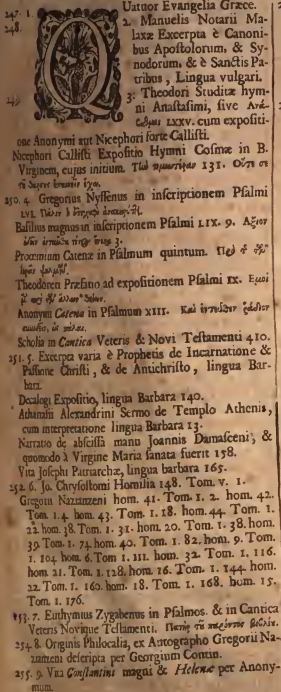 247. 1. QUatuor Evangelia Græce.
248. 2. Manuelis Notarii Ma-
laxæ Excerpta è Canoni-
bus Apostolorum, & Sy-
nodorum, & è Sanctis Pa-
tribus, Lingua vulgari.
249. 3. Theodori Studitæ hym-
ni Anastasimi, sive
LXXV. cum expositi-
one Anonymi aut Nicephori forte Callisti.
Nicephori Callisti Expositio Hymni Cosmæ in B.
Virginem, cujus initium. 131. Οὔτι σε
250. 4. Gregorius Nyssenus in inscriptionem Psalmi
LVI.
Basilius magnus in inscriptionem Psalmi LIX. 9.
3.
Proœmium Catenæ in Psalmum quintum.
Theodoreti Præfatio ad expositionem Psalmi IX. Εμοὶ
Anonymi Catena in Psalmum XIII. Καὶ ἐντεῦθεν
Scholia in Cantica Veteris & Novi Testamenti 410.
251. 5. Excerpta varia è Prophetis de Incarnatione &
Passione Christi, & de Antichristo, lingua Bar-
bara.
Decalogi Expositio, lingua Barbara 140.
Athanasii Alexandrini Sermo de Templo Athenis,
cum interpretatione lingua Barbara 13.
Narratio de abscissâ manu Joannis Damasceni, &
quomodo à Virgine Maria sanata fuerit 158.
Vita Josephi Patriarchæ, lingua barbara 165.
252. 6. Jo. Chrysostomi Homilia 148. Tom. v. 1.
Gregorii Nazianzeni hom. 41. Tom. 1. 2. hom. 42.
Tom. 1. 4. hom. 43. Tom. 1. 18. hom. 44. Tom. 1.
22. hom. 38. Tom. 1. 31. hom. 20. Tom. 1. 38. hom.
39. Tom. 1. 74. hom. 40. Tom. 1. 82. hom. 9. Tom.
1. 104. hom. 6. Tom. 1. 111. hom. 32. Tom. 1. 116.
hom. 21. Tom. 1. 128. hom. 16. Tom. 1. 144. hom.
22. Tom. 1. 160. hom. 18. Tom. 1. 168. hom. 15.
Tom. 1. 176.
253. 7. Euthymius Zygabenus in Psalmos. & in Cantica
Veteris Novique Testamenti.
254. 8. Originis Philocalia, ex Autographo Gregorii Na-
zianzeni descripta per Georgium Contin.
255. 9. Vita Constantini magni & Helenæ per Anony-
mum.